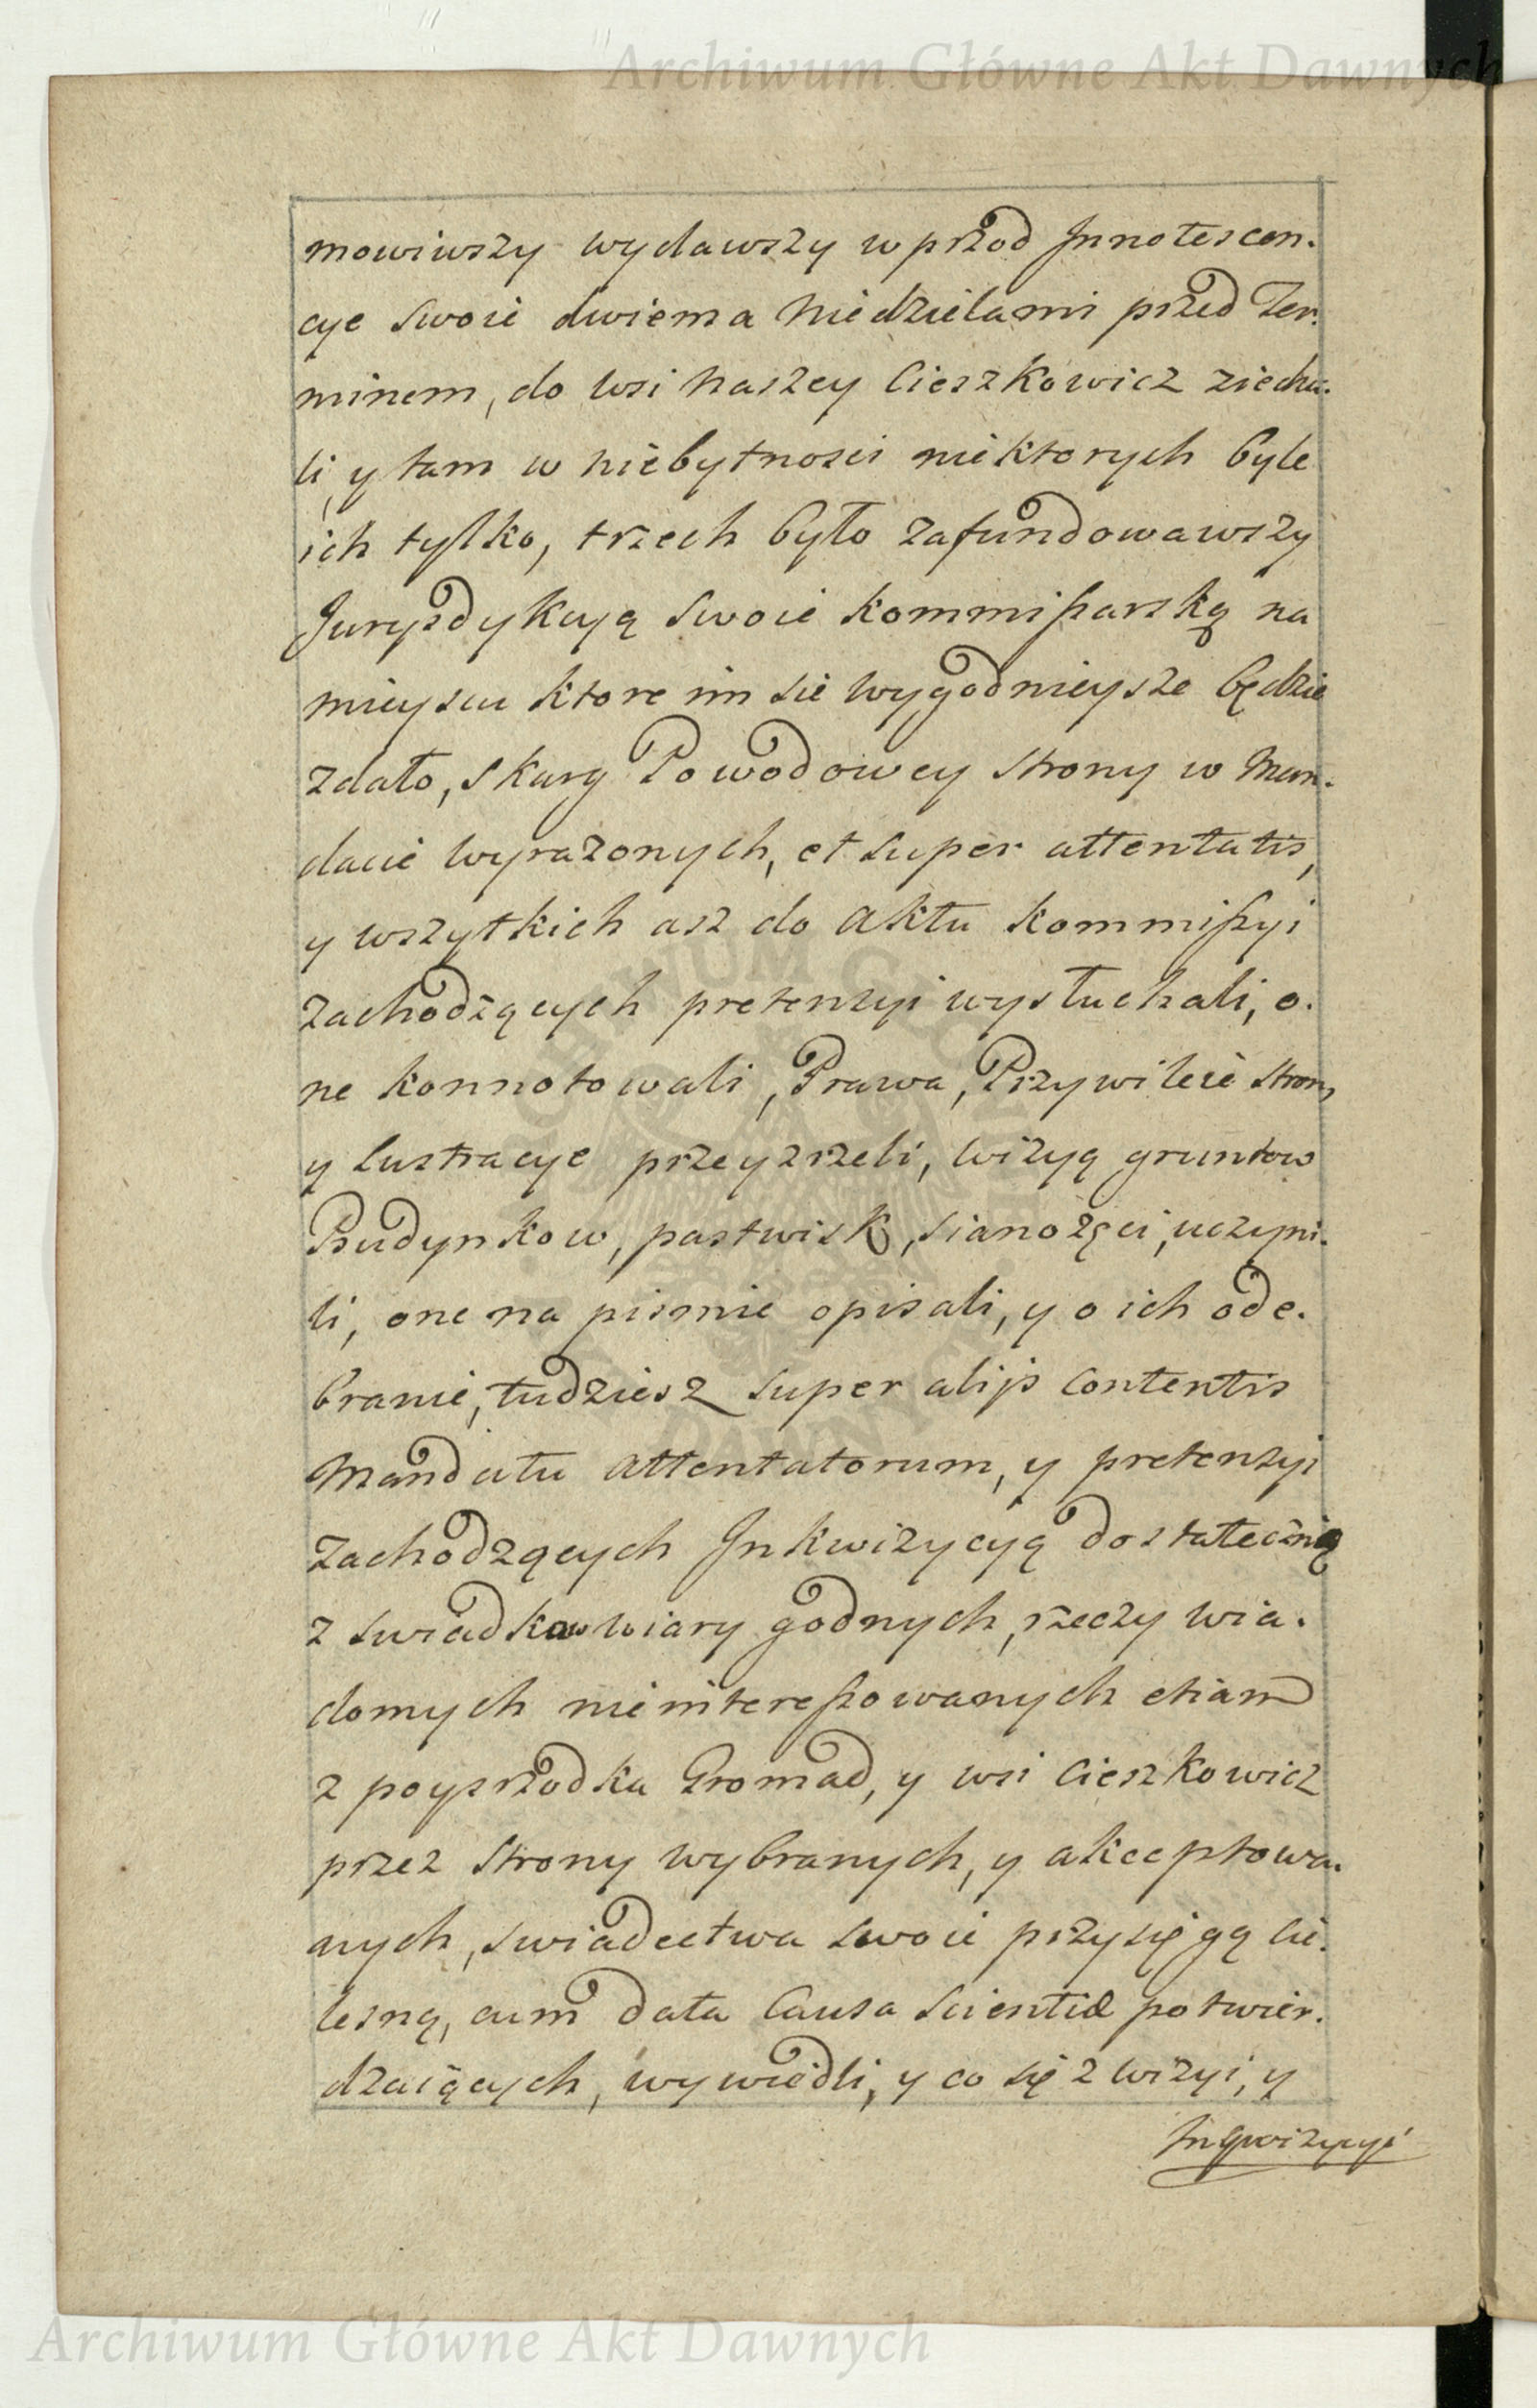 Archiwum Główne Akt Dawnych
mowiwszy wydawszy w przod Innotescen.
cye swoie dwiema Niedzielami przed Ter.
minem, do wsi Naszey Cieszkowicz ziecha.
li, y tam w niebytnosci niektorych byle
ich tylko, trzech było zafundowawszy
Jurysdykcyą swoie kommißarską na
mieyscu ktore im sie wygodnieysze będzie
zdało, skarg Powodowey strony w Man.
dacie wyrazonych, et super attentatis,
y wszytkich asz do Aktu kommißyi
zachodzących pretensyi wysłuchali, o.
ne konnotowali, Prawa, Przywileie stron,
y lustracye przeyzrzeli, wizyą gruntow
Budynkow, pastwisk, sianożęci, uczyni.
li, one na pismie opisali, y o ich ode.
branie, tudziesz super alijs contentis
Mandatu attentatorum, y pretensyi
zachodzących Inkwizycyą dostateczną
z swiadkow wiary godnych, rzeczy wia.
domych nieintereßowanych etiam
z poyszrzodka Gromad, y wsi Cieszkowicz
przez strony wybranych, y akceptowa.
nych, swiadectwa swoie przysięgą cie.
lesną, cum data Causa scientiæ potwier.
dzaiących, wywiedli, y co się z wizyi, y
Inqwizycyi
Archiwum Główne Akt Dawnych